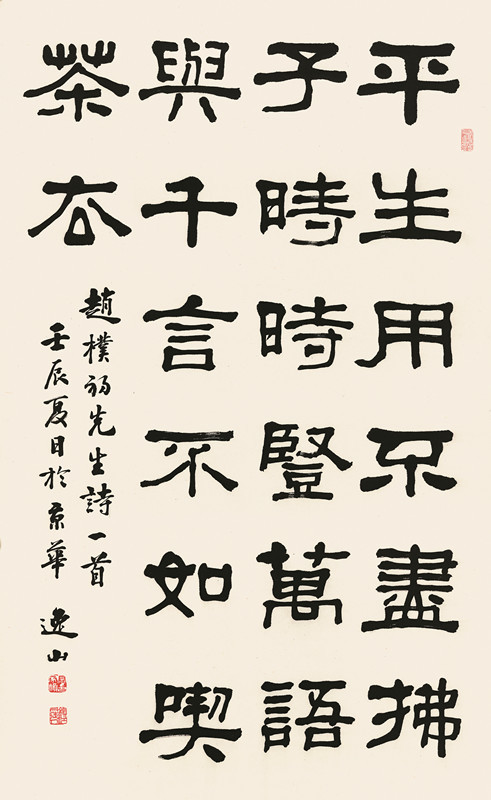 平生用不盡拂
子時時豎萬語
與千言不如喫
茶去
趙樸初先生詩一首
壬辰夏日於京華 逸山